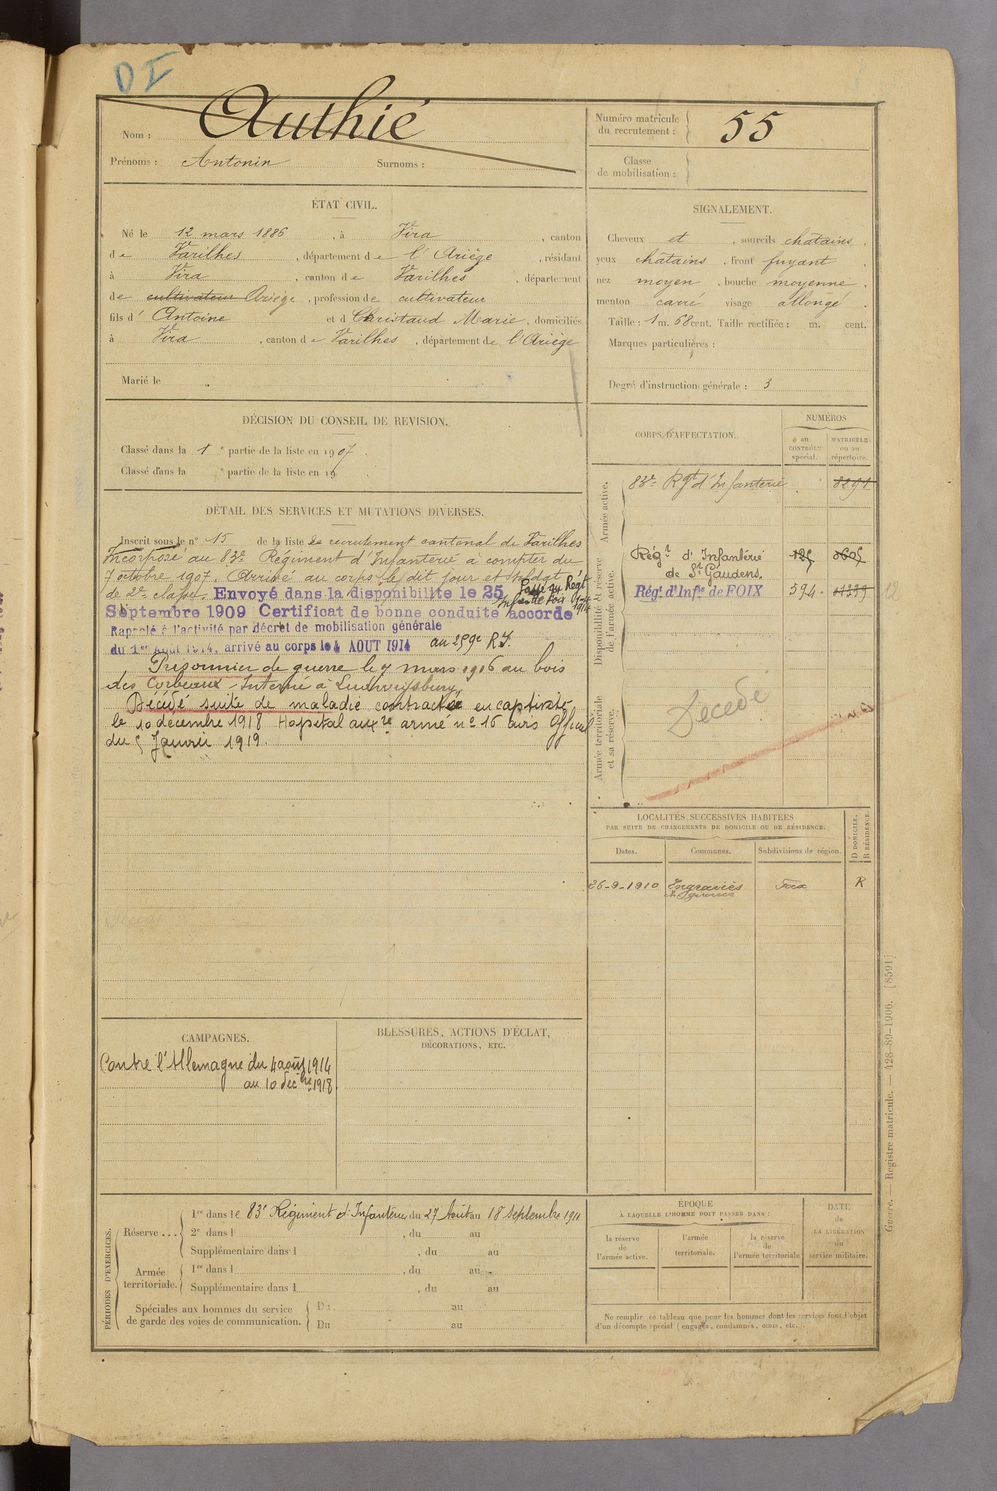 DI
Nom : Authié
Prénoms : Antonin Surnoms :
Numéro matricule du recrutement : 55
Classe de mobilisation :
ÉTAT CIVIL.
Né le 12 mars 1886, à Vira, canton
de Varilhes, département de l'Ariège, résidant
à Vira, canton de Varilhes, département
de cultivateur Ariège, profession de cultivateur
fils d' Antoine et d Christaud Marie, domiciliés
à Vira, canton de Varilhes, département de l'Ariège
Marié le
SIGNALEMENT.
Cheveux et, sourcils chatains,
yeux chatains, front fuyant,
nez moyen, bouche moyenne,
menton carré visage allongé
Taille : 1 m. 68 cent. Taille rectifiée : m. cent.
Marques particulières :
Degré d'instruction générale : 3
DÉCISION DU CONSEIL DE REVISION.
Classé dans la 1e partie de la liste en 1907.
Classé dans la e partie de la liste en 19
DÉTAIL DES SERVICES ET MUTATIONS DIVERSES.
Inscrit sous le n° 15 de la liste de recrutement cantonal de Varilhes
Incorporé au 83e Régiment d'Infanterie à compter du
7 octobre 1907. Arrivé au corps le dit jour et soldat
de 2e classe. Envoyé dans la disponibilité le 25
Passé au Regt
Infanterie Foix
1914
Septembre 1909 Certificat de bonne conduite accordé
Rappelé à l'activité par décret de mobilisation générale
du 1er Août 1914, arrivé au corps le 4 AOUT 1914 au 259e R.I.
Prisonnier de guerre le 7 mars 1916 au bois
des Corbeaux - Interné à Ludwigsburg
Décédé suite de maladie contractée en captivité
le 10 décembre 1918 Hopital auxre armé n° 16 avis officiel
du 5 Janvier 1919.
CORPS D'AFFECTATION.
NUMÉROS
au CONTRÔLE spécial.
MATRICULE ou au répertoire.
Armée active.
83e Rgt d'Infanterie
Disponibilité et réserve de l'armée active.
Régt d'Infanterie
de St Gaudens.
Régt d'Infie de FOIX 594
Armée territoriale et sa réserve.
Décédé
LOCALITÉS SUCCESSIVES HABITÉES
PAR SUITE DE CHANGEMENTS DE DOMICILE OU DE RÉSIDENCE.
Dates. Communes. Subdivisions de région. D DOMICILE. R RÉSIDENCE.
26-9-1910 Engraviès Foix R
CAMPAGNES.
Contre l'Allemagne du 4 août 1914
au 10 décbre 1918
BLESSURES, ACTIONS D'ÉCLAT,
DÉCORATIONS, ETC.
PÉRIODES D'EXERCICES.
Réserve ...
1re dans le 83e Régiment d'Infanterie, du 27 Août au 18 septembre 1911
2e dans l , du au
Supplémentaire dans l , du au
Armée territoriale.
1re dans l , du au
Supplémentaire dans l , du au
Spéciales aux hommes du service
de garde des voies de communication.
Du au
Du au
ÉPOQUE
À LAQUELLE L'HOMME DOIT PASSER DANS :
la réserve de l'armée active.
l'armée territoriale.
la réserve de l'armée territoriale
DATE de LA LIBÉRATION du service militaire.
Ne remplir ce tableau que pour les hommes dont les services font l'objet
d'un décompte spécial (engagés, condamnés, omis, etc.).
Guerre. — Registre matricule. — 428-89-1906. [8591]